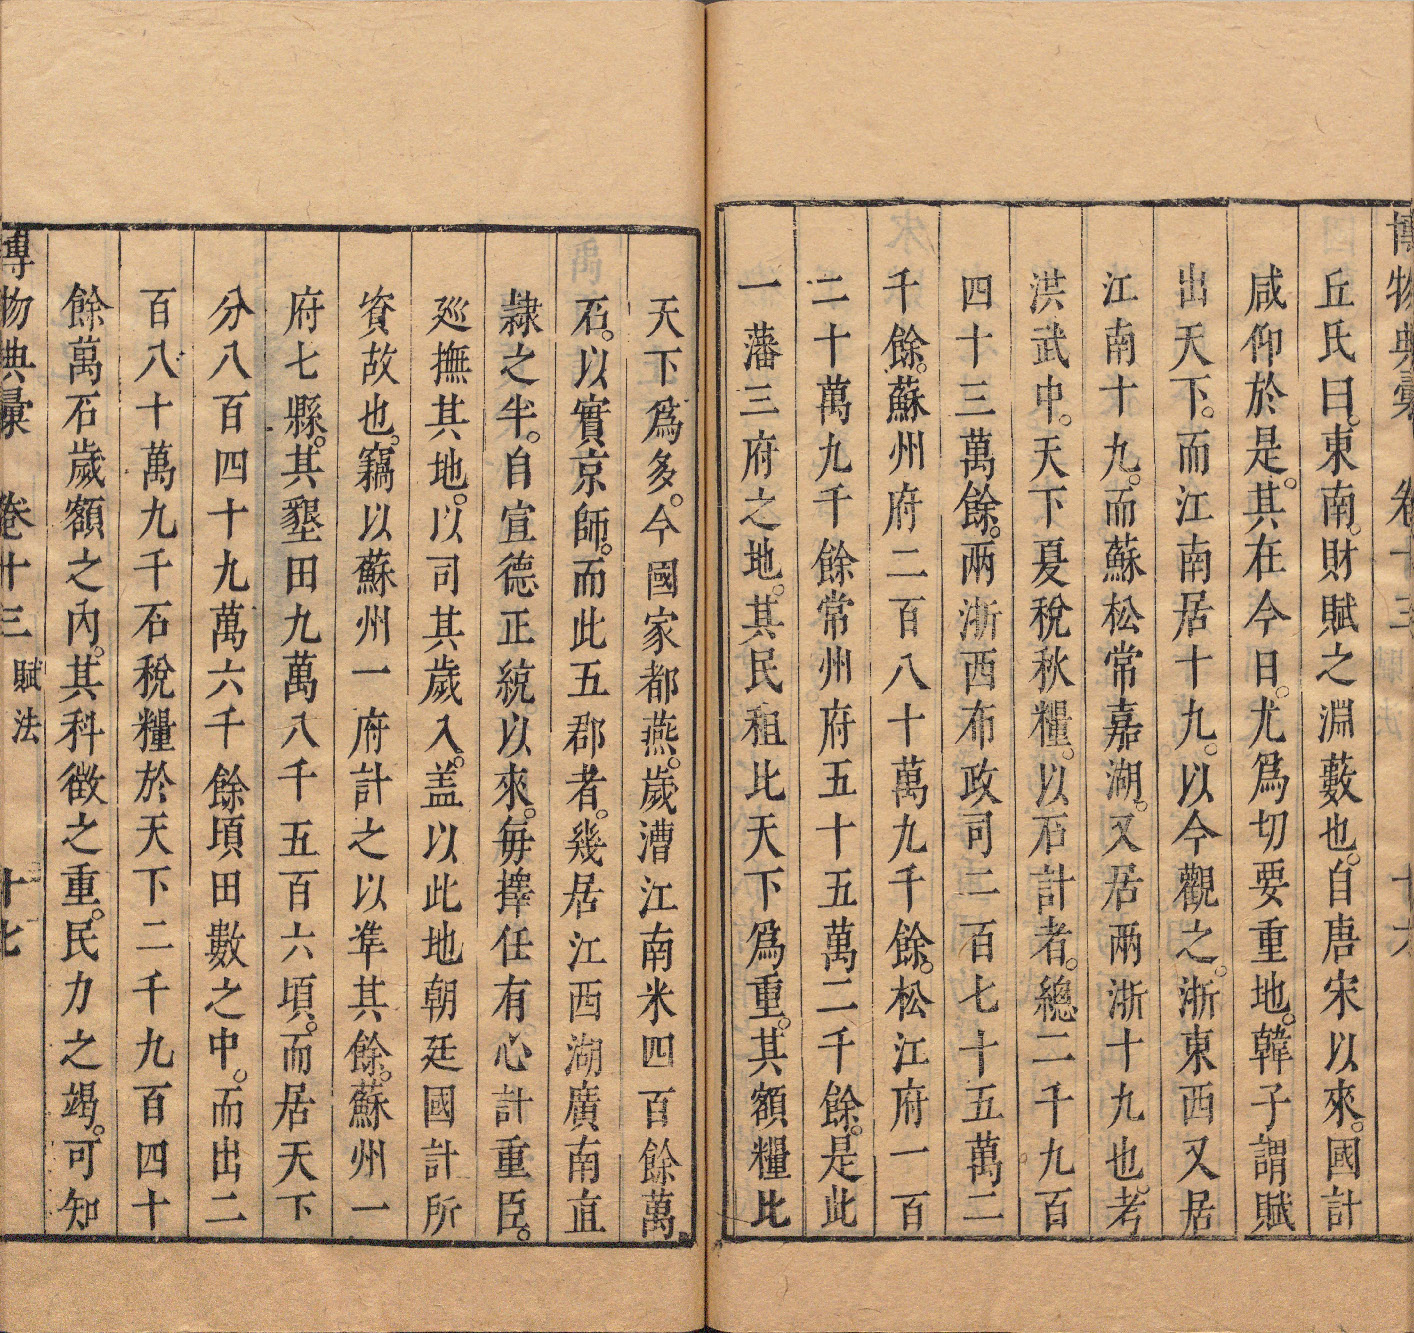 博物典彙 卷十三 賦法 十六
丘氏曰。東南。財賦之淵藪也。自唐宋以來。國計
咸仰於是。其在今日。尤爲切要重地。韓子謂賦
出天下。而江南居十九。以今觀之。浙東西又居
江南十九。而蘇松常嘉湖。又居兩浙十九也。考
洪武中。天下夏稅秋糧。以石計者。總二千九百
四十三萬餘。兩浙西布政司二百七十五萬二
千餘。蘇州府二百八十萬九千餘。松江府一百
二十萬九千餘常州府五十五萬二千餘。是此
一藩三府之地。其民租比天下爲重。其額糧比
天下爲多。今國家都燕。歲漕江南米四百餘萬
石。以實京師。而此五郡者。幾居江西湖廣南直
隸之半。自宣德正統以來。每擇任有心計重臣。
巡撫其地。以司其歲入。盖以此地朝廷國計所
資故也。竊以蘇州一府計之以準其餘。蘇州一
府七縣。其墾田九萬八千五百六頃。而居天下
分八百四十九萬六千餘頃田數之中。而出二
百八十萬九千石稅糧於天下二千九百四十
餘萬石歲額之內。其科徵之重。民力之竭。可知
博物典彙 卷十三 賦法 十七